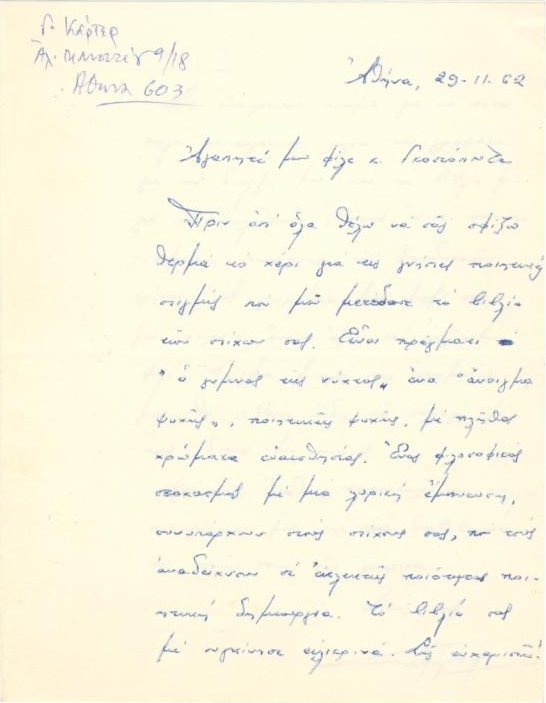 Γ. Κάρτερ
Ἀλ. 9/18
Ἀθήνα 603
Ἀθήνα, 29-11-62
Ἀγαπητέ μου φίλε κ.
Πρὶν ἀπ' ὅλα θέλω νὰ σᾶς σφίξω
θερμὰ τὸ χέρι γιὰ τὶς γνήσιες ποιητικὲς
στιγμὲς ποὺ μοῦ μετέδωσε τὸ βιβλίο
τῶν στίχων σας. Εἶναι πράγματι
"ὁ γυμνὸς τῆς νύχτας" ἕνα "ἄνοιγμα
ψυχῆς", ποιητικῆς ψυχῆς, μὲ πλῆθος
χρώματα εὐαισθησίας. Ἕνας φιλοσοφικὸς
στοχασμὸς μὲ μιὰ λυρικὴ ἔμπνευση,
συνυπάρχουν στοὺς στίχους σας, ποὺ τοὺς
ἀναδείχνουν σὲ ἐκλεκτῆς ποιότητας ποι-
ητικὴ δημιουργία. Τὸ βιβλίο σας
μὲ συγκίνησε εἰλικρινά. Σᾶς εὐχαριστῶ!